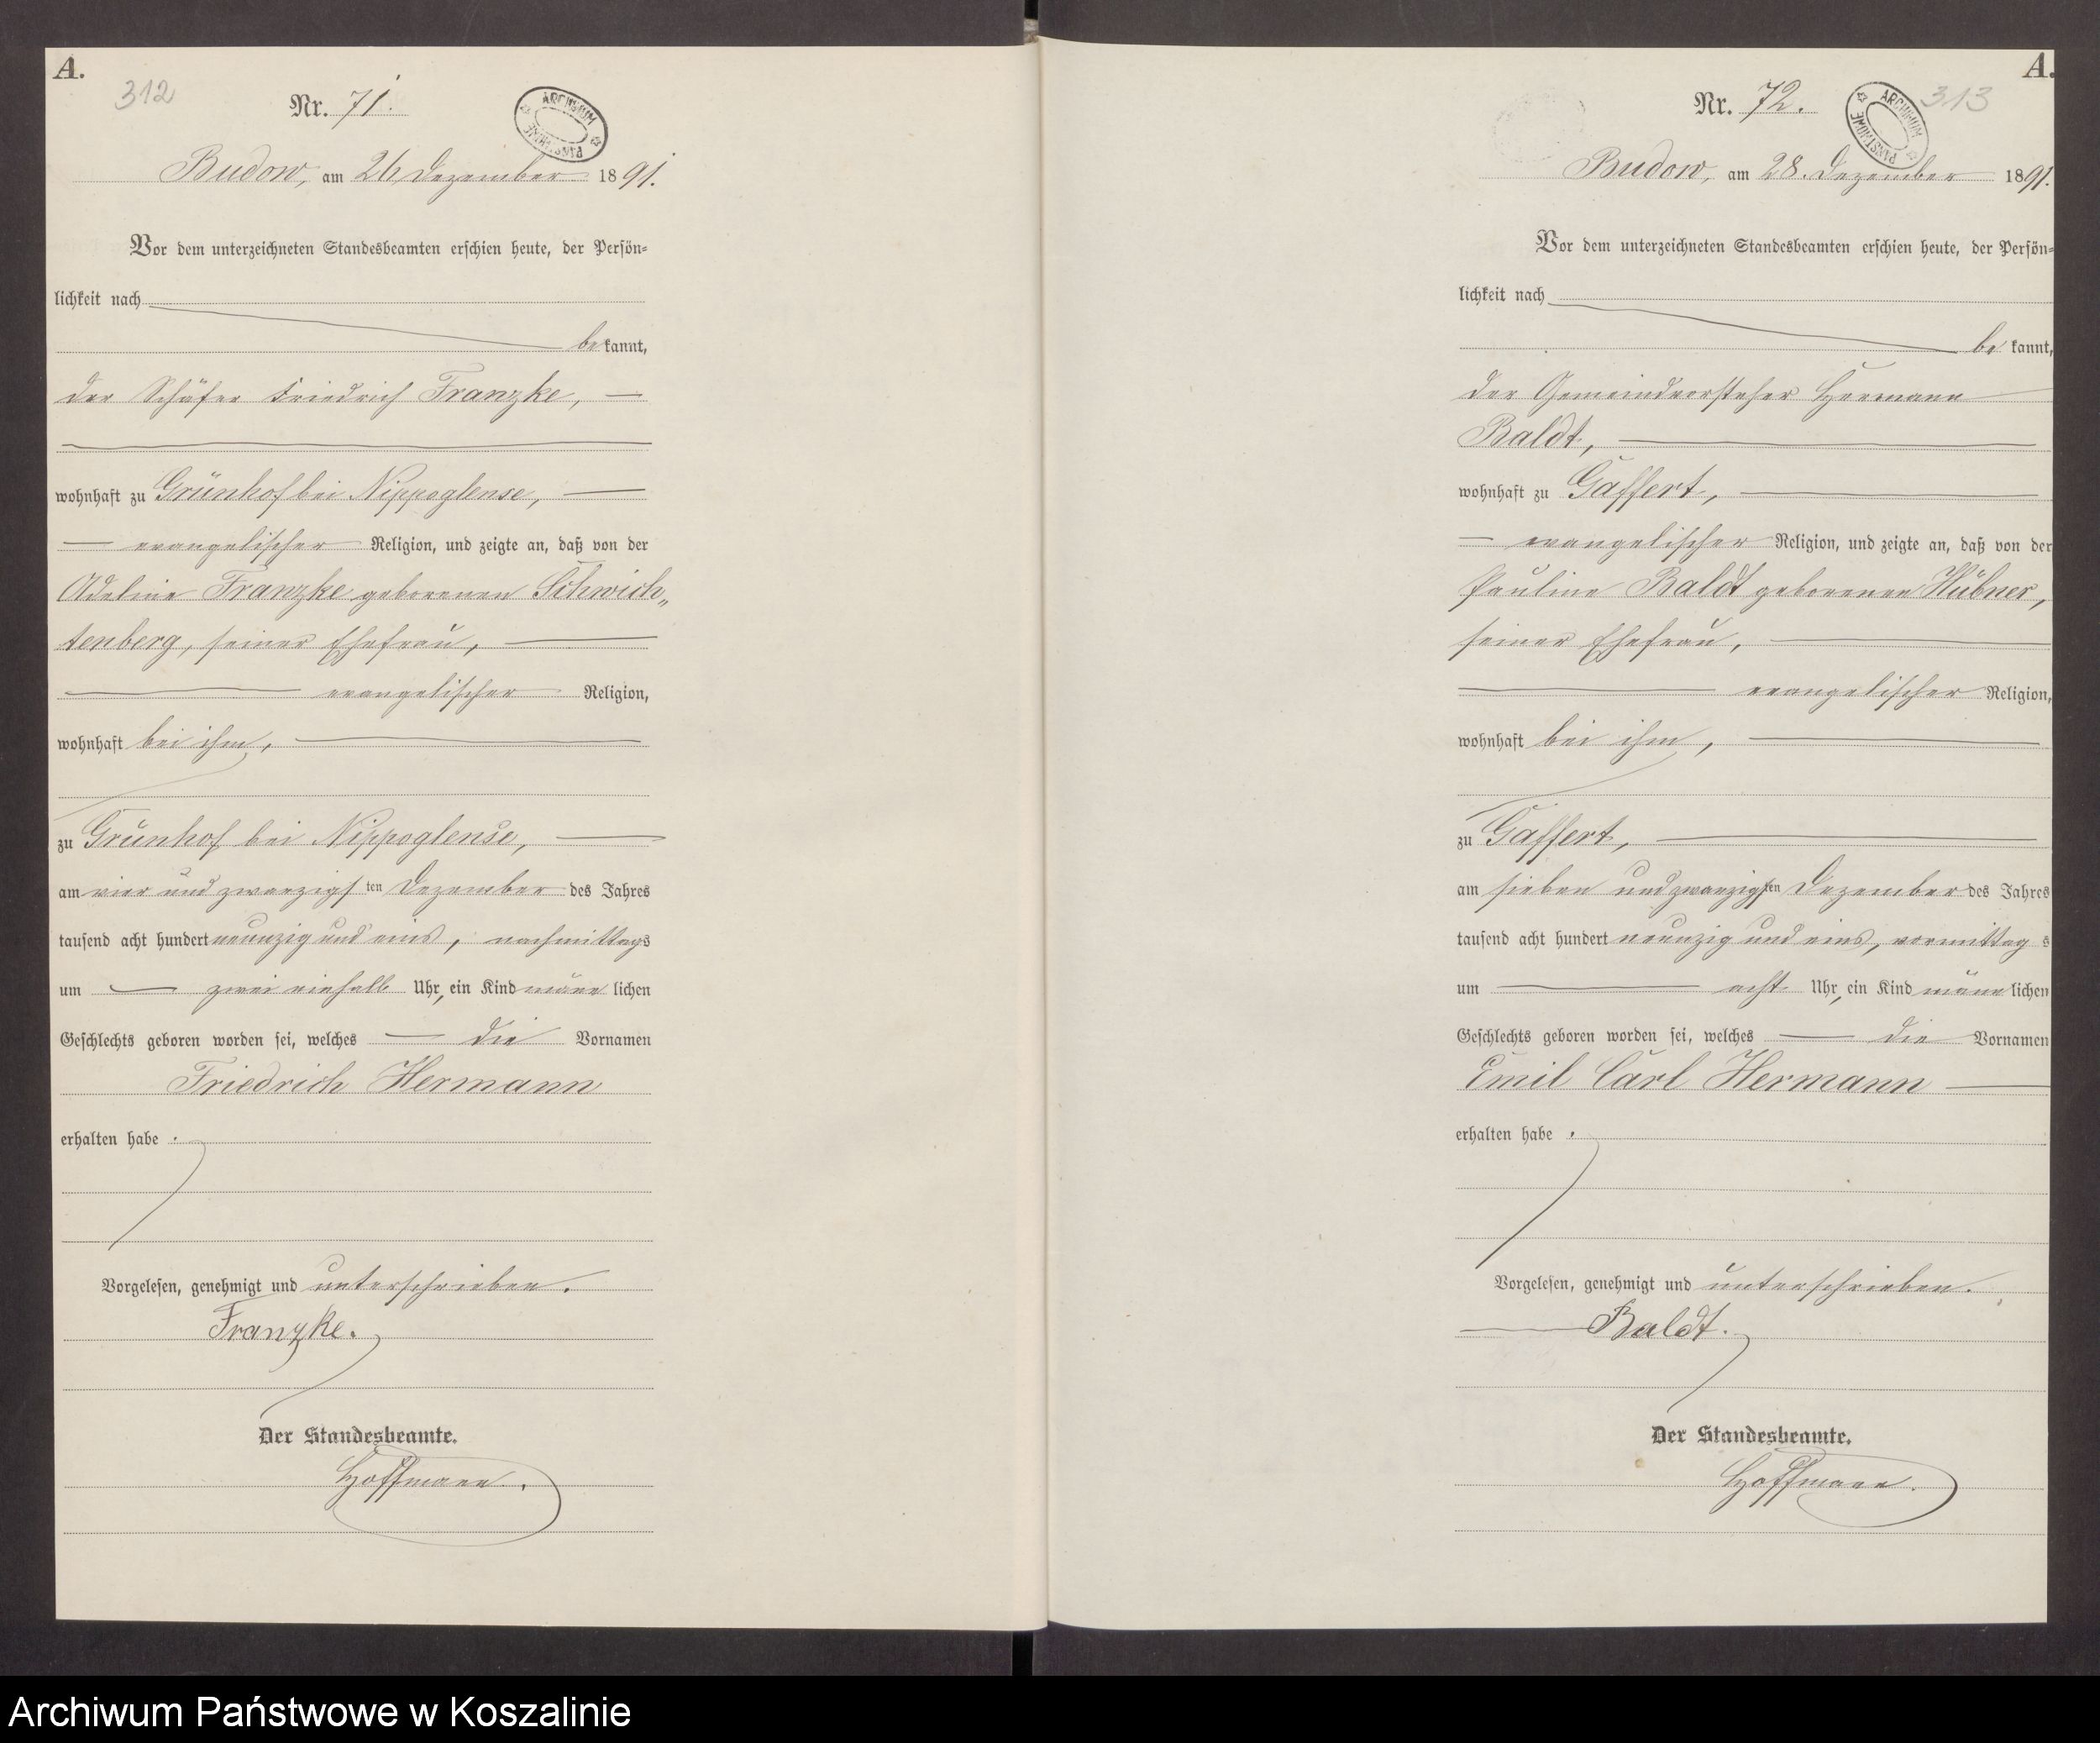 A.
312
Nr. 71.
ARCHIWUM PAŃSTWOWE
Budow, am 26 Dezember 1891.
Vor dem unterzeichneten Standesbeamten erschien heute, der Persön-
lichkeit nach
bekannt,
der Schäfer Friedrich Franzke,
wohnhaft zu Grünhof bei Nippoglense,
evangelischer Religion, und zeigte an, daß von der
Adeline Franzke geborenen Schwich-
tenberg, seiner Ehefrau,
evangelischer Religion,
wohnhaft bei ihm,
zu Grünhof bei Nippoglense,
am vier und zwanzigsten Dezember des Jahres
tausend acht hundert neunzig und eins, nachmittags
um zwei einhalb Uhr, ein Kind männlichen
Geschlechts geboren worden sei, welches die Vornamen
Friedrich Hermann
erhalten habe.
Vorgelesen, genehmigt und unterschrieben.
Franzke.
Der Standesbeamte.
Hoffmann.
A.
313
Nr. 72.
ARCHIWUM PAŃSTWOWE
Budow, am 28. Dezember 1891.
Vor dem unterzeichneten Standesbeamten erschien heute, der Persön-
lichkeit nach
bekannt,
der Gemeindevorsteher Hermann
Baldt,
wohnhaft zu Gaffert,
evangelischer Religion, und zeigte an, daß von der
Pauline Baldt geborenen Hübner,
seiner Ehefrau,
evangelischer Religion,
wohnhaft bei ihm,
zu Gaffert,
am sieben und zwanzigsten Dezember des Jahres
tausend acht hundert neunzig und eins, vormittags
um acht Uhr, ein Kind männlichen
Geschlechts geboren worden sei, welches die Vornamen
Emil Carl Hermann
erhalten habe.
Vorgelesen, genehmigt und unterschrieben.
Baldt.
Der Standesbeamte.
Hoffmann.
Archiwum Państwowe w Koszalinie